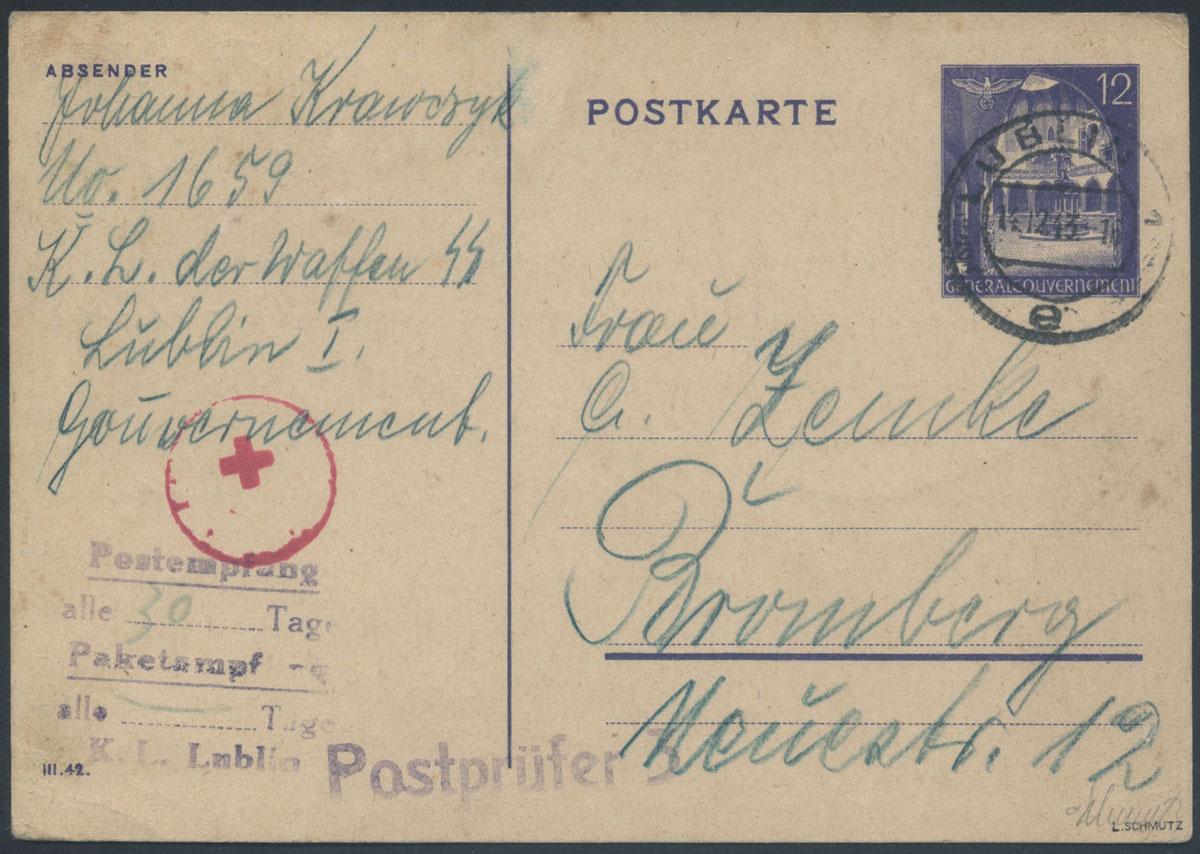 ABSENDER
Johanna Krawczyk
No. 1659
K. L. der Waffen SS
Lublin I.
Gouvernement.
Postempfang
alle 30 Tage
Paketempf
alle Tage
K. L. Lublin
III.42.
Postprüfer 3
POSTKARTE
12
LUBLIN
e
GENERALGOUVERNEMENT
Frau
G. Zemke
Bromberg
Neuestr. 12
L.SCHMUTZ